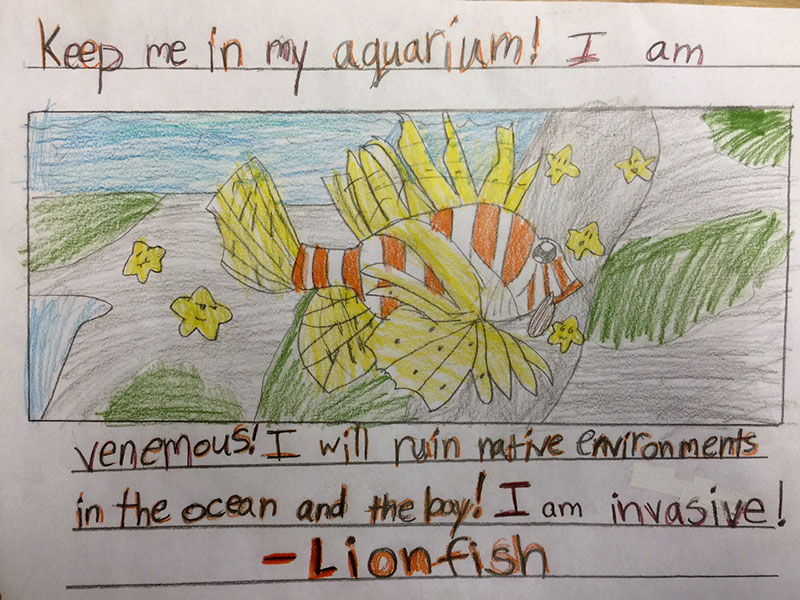 Keep me in my aquarium! I am
venemous! I will ruin native environments
in the ocean and the bay! I am invasive!
- Lionfish